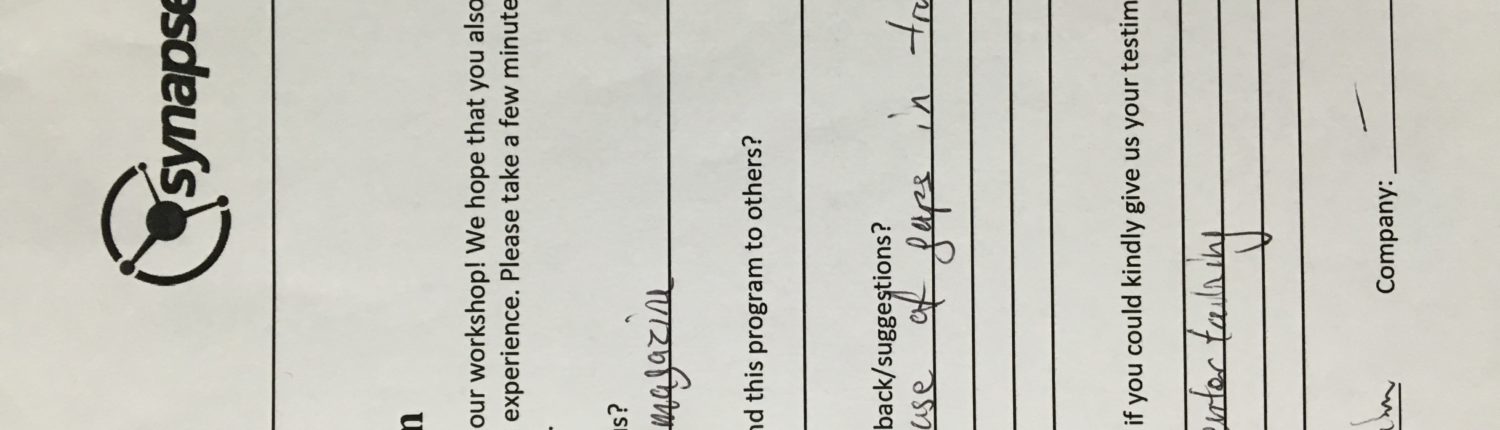 synapse
n
our workshop! We hope that you also
experience. Please take a few minute
us?
magazine
nd this program to others?
back/suggestions?
use of gaps in
if you could kindly give us your testim
entertaining
Company: